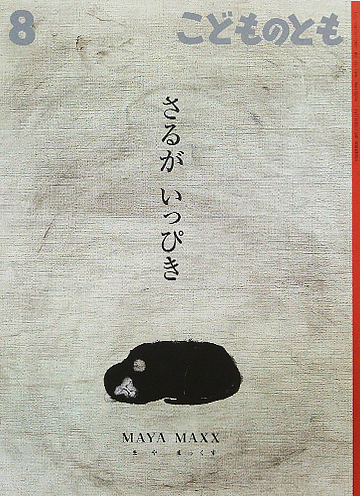 8 こどものとも
さるが いっぴき
MAYA MAXX
ま や まっくす